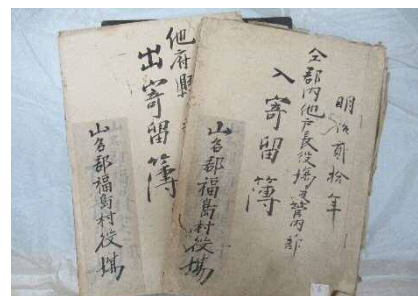 明治貳拾年
仝郡内他戸長役場管内ゟ
入寄留簿
山名郡福島村役場
他府縣
出寄留簿
山名郡福島村役場